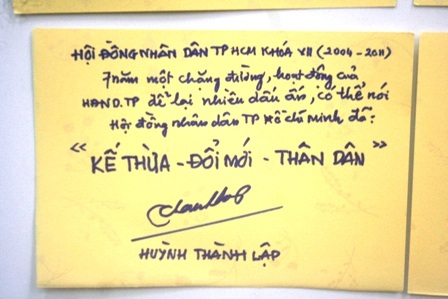 HỘI ĐỒNG NHÂN DÂN TP HCM KHÓA VII (2004-2011)
7 năm một chặng đường, hoạt động của
HĐND.TP để lại nhiều dấu ấn, có thể nói
Hội đồng nhân dân TP Hồ Chí Minh đã:
"KẾ THỪA - ĐỔI MỚI - THÂN DÂN"
HUỲNH THÀNH LẬP